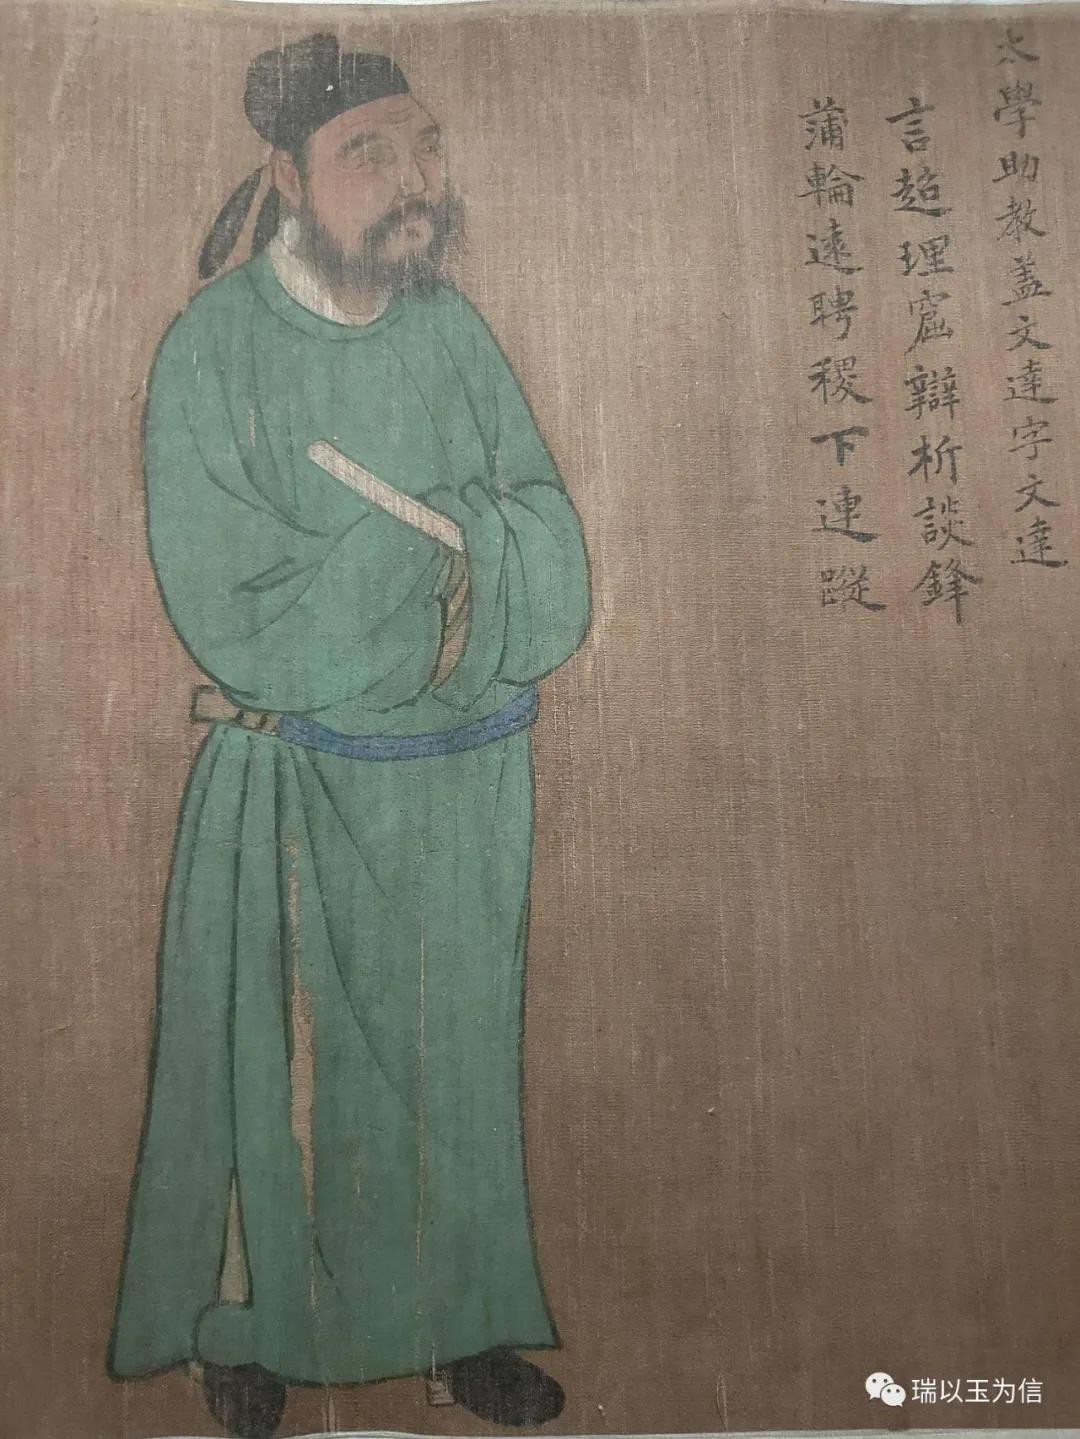 太學助教蓋文達字文達
言超理窟辯析談鋒
蒲輪遠聘稷下連蹤
瑞以玉为信